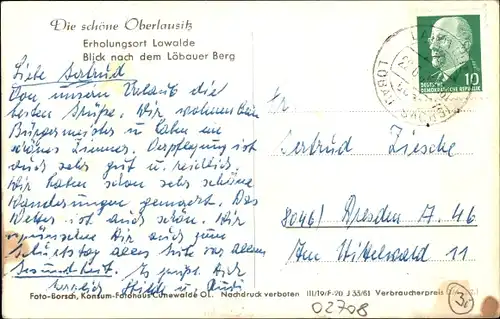 Die schöne Oberlausitz
Erholungsort Lawalde
Blick nach dem Löbauer Berg
Liebe Gertrud
Von unsern Urlaub die
besten Grüße. Wir wohnen beim
Bürgermeister u haben ein
schönes Zimmer. Verpflegung ist
auch sehr gut u. reichlich.
Wir haben schon sehr schöne
Wanderungen gemacht. Das
Wetter ist auch schön. Wir
wünschen Dir auch zum
Geburtstag alles Gute vor allem
Gesundheit. Es grüßt Dich
herzlich Hilde u. Rudi
Fr.
Gertrud Ziesche
8046 Dresden A. 46
Am Mittelwald 11
10
DEUTSCHE
DEMOKRATISCHE REPUBLIK
LÖBAU
Foto-Borsch, Konsum-Fotohaus Cunewalde OL. Nachdruck verboten III/19/F-90 J 33/61 Verbraucherpreis
02708